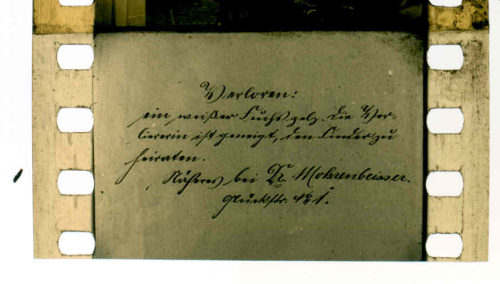 Verloren:
ein weißer Fuchspelz. Die Ver-
liererin ist geneigt, den Finder zu
heiraten.
Näheres bei Dr. Mohrenbeisser.
Glückstr.